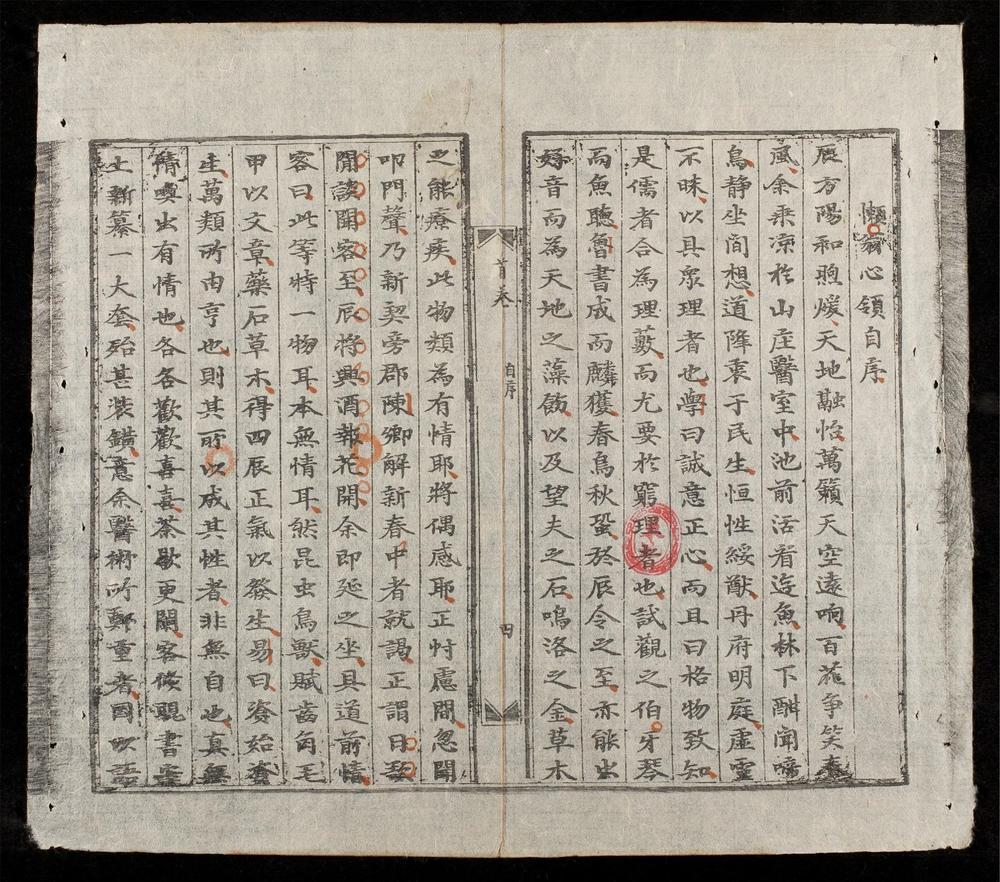 懶翁心領自序
辰方陽和煦煖天地融怡萬籟天空遠响百花争笑春
風余乘凉於山庄醫室中池前活看遊魚林下酣聞啼
鳥静坐间想道降衷于民生恒性綏猷丹府明庭虛靈
不昧以具衆理者也學曰誠意正心而且曰格物致知
是儒者合為理藪而尤要於窮理者也試觀之伯牙琴
而魚聽魯書成而麟獲春鳥秋蛩於辰令之至亦能出
好音而為天地之藻餙以及望夫之石嗚洛之金草木
之能療疾此物類為有情耶將偶感耶正忖慮間忽聞
叩門聲乃新契旁郡陳卿解新春中者就謁正謂日
閒談聞客至辰將興酒報花開余即延之坐具道前情
容曰此等特一物耳本無情耳然昆虫鳥獸賦齒角毛
甲以文章藥石草木得四辰正氣以發生易曰资始资
生萬類所由亨也則其所以成其性者非無自也真無
情喚出有情也各各歡歡喜喜茶歇更闌客倏覩書
士新纂一大套殆甚裝鐄意余醫術所鄭重者因以語
首卷
自序
四